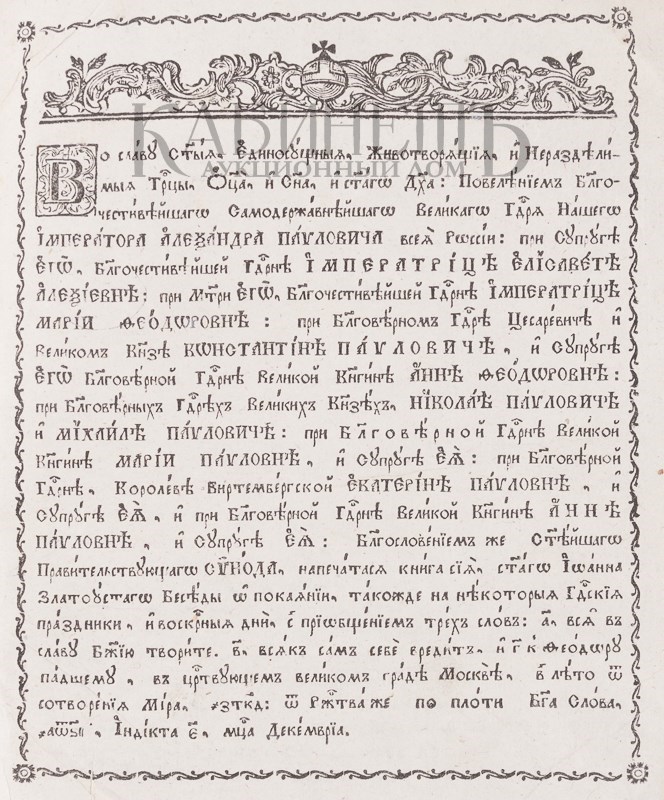 КАБИНЕТЪ
АУКЦИОННЫЙ ДОМ
Во славу Ст҃ы́ѧ, Е҆диносу́щныѧ, Животворѧ́щіѧ, и҆ Нераздѣли́-
мыѧ Трⷪ҇цы, Ѻ҆ц҃а̀, и҆ Сн҃а, и҆ ст҃а́гѡ Дх҃а: Повелѣ́нїемъ Блг҃о-
чести́вѣйшагѡ Самодержа́внѣйшагѡ Вели́кагѡ Гдⷭ҇рѧ На́шегѡ
І҆МПЕРА́ТОРА А҆ЛЕѮА́НДРА ПА́ѴЛОВИЧА всеѧ̀ Рѡссі́и: при Сꙋпрꙋ́гѣ
Е҆ГѠ̀, Блг҃очести́вѣйшей Гдⷭ҇рнѣ І҆МПЕРАТРІ́ЦѢ Е҆ЛІСАВЕ́ТѢ
А҆ЛЕѮІ́ЕВНѢ: при Мт҃ри Е҆ГѠ̀, Блг҃очести́вѣйшей Гдⷭ҇рнѣ І҆МПЕРАТРІ́ЦѢ
МАРІ́И ѲЕО́ДѠРОВНѢ: при Блг҃овѣ́рномъ Гдⷭ҇рѣ Цесаре́вичѣ и҆
Вели́комъ Кн҃зѣ КѠНСТАНТІ́НѢ ПА́ѴЛОВИЧѢ, и҆ Сꙋпрꙋ́гѣ
Е҆ГѠ̀ Блг҃овѣ́рной Гдⷭ҇рнѣ Вели́кой Кн҃ги́нѣ А҆́ННѢ ѲЕО́ДѠРОВНѢ:
при Блг҃овѣ́рныхъ Гдⷭ҇рѣхъ Вели́кихъ Кн҃зѣхъ, НІКОЛА́Ѣ ПА́ѴЛОВИЧѢ
и҆ МІХАИ́ЛѢ ПА́ѴЛОВИЧѢ: при Блг҃овѣ́рной Гдⷭ҇рнѣ Вели́кой
Кн҃ги́нѣ МАРІ́И ПА́ѴЛОВНѢ, и҆ Сꙋпрꙋ́гѣ Е҆Ѧ̀: при Блг҃овѣ́рной
Гдⷭ҇рнѣ, Короле́вѣ Виртембе́ргской Е҆КАТЕРІ́НѢ ПА́ѴЛОВНѢ, и҆
Сꙋпрꙋ́гѣ Е҆Ѧ̀, и҆ при Блг҃овѣ́рной Гдⷭ҇рнѣ Вели́кой Кн҃ги́нѣ А҆́ННѢ
ПА́ѴЛОВНѢ, и҆ Сꙋпрꙋ́гѣ Е҆Ѧ̀: Блг҃ослове́нїемъ же Ст҃ѣ́йшагѡ
Прави́тельствꙋющагѡ СѴНО́ДА, напеча́тасѧ кни́га сїѧ̀, ст҃а́гѡ І҆ѡа́нна
Златоꙋ́стагѡ Бесѣ́ды ѡ҆ покаѧ́нїи, та́кожде на нѣ́которыѧ Гдⷭ҇скїѧ
пра́здники, и҆ воскрⷭ҇ныѧ дни̑, с̾ прїѡбще́нїемъ тре́хъ сло́въ: а҃, всѧ̑ въ
сла́вꙋ Бж҃їю твори́те. в҃, всѧ́къ са́мъ себѐ вреди́тъ, и҆ г҃ к̾ Ѳео́дѡрꙋ
па́дшемꙋ, въ црⷭ҇твꙋющемъ вели́комъ гра́дѣ Москвѣ̀, в̾ лѣ́то ѿ
сотворе́нїѧ Мі́ра, ҂зткд҃: ѿ Рж҃тва́ же по пло́ти Бг҃а Сло́ва,
҂аѿѕі҃, І҆нді́кта є҃, мцⷭ҇а Деке́мврїа.